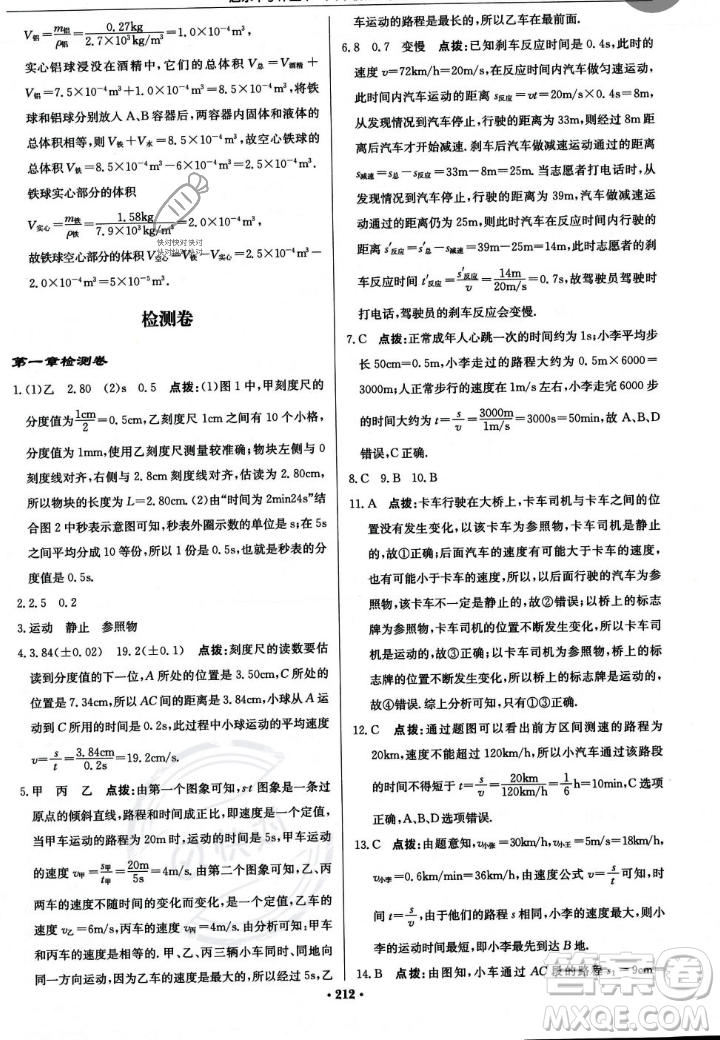 V铝=m铝/ρ铝=0.27kg/2.7×10³kg/m³=1.0×10⁻⁴m³。
实心铝球浸没在酒精中，它们的总体积 V总=V酒精+
V铝=7.5×10⁻⁴m³+1.0×10⁻⁴m³=8.5×10⁻⁴m³。将铁
球和铝球分别放人 A、B 容器后，两容器内固体和液体的
总体积相等，则 V铁+V水=8.5×10⁻⁴m³，故空心铁球
总体积 V铁=8.5×10⁻⁴m³-6×10⁻⁴m³=2.5×10⁻⁴m³。
铁球实心部分的体积
V实心=m铁/ρ铁=1.58kg/7.9×10³kg/m³=2.0×10⁻⁴m³，
快对快对快对
快对快对快对
故铁球空心部分的体积 V空心=V铁-V实心=2.5×10⁻⁴m³-
2.0×10⁻⁴m³=5×10⁻⁵m³。
检测卷
第一章检测卷
1.(1)乙 2.80 (2)s 0.5 点拨：(1)图 1 中，甲刻度尺的
分度值为1cm/2=0.5cm，乙刻度尺 1cm 之间有 10 个小格，
分度值为 1mm，使用乙刻度尺测量较准确；物块左侧与 0
刻线对齐，右侧与 2.8cm 刻线对齐，估读为 2.80cm，
所以物块的长度为 L=2.80cm。(2)由“时间为 2min24s”结
合图 2 中表示意图可知，秒表外圈示数的单位是 s；在 5s
之间平均分成 10 等份，所以它的一个小格是 0.5s，即分
度值是 0.5s。
2.2.5 0.2
3.运动 静止 参照物
4.3.84(±0.02) 19.2(±0.1) 点拨：刻度尺的读数要估
读到分度值的下一位，A 所处的位置是 3.50cm，C 所处的
位置是 7.34cm，所以 AC 间的距离是 3.84cm；小球从 A 运
动到 C 所用的时间是 0.2s，此过程中小球运动的平均速度
v=s/t=3.84cm/0.2s=19.2cm/s。
5.甲 丙 乙 点拨：由第一个图象可知，s-t 图象是一条过
原点的倾斜直线，路程和时间成正比，即速度是一个定值，
当甲车运动的路程为 20m 时，运动的时间为 5s，甲车运动
的速度 v甲=s甲/t甲=20m/5s=4m/s，由第二个图象可知，乙、丙
两车的速度不随时间的变化而变化，是一个定值，乙车的
速度 v乙=6m/s，丙车的速度 v丙=5m/s。甲、丙两车的运
动方向相同。甲、乙、丙三辆小车同时、同地向
同一方向运动，因为乙车的速度是最大的，所以经过5s，乙
车运动的路程是最长的，所以乙车在最前方。
6.8 0.7 变慢 点拨：已知刹车反应时间是 0.4s，此时的
速度 v=72km/h=20m/s，在反应时间内汽车做匀速运
动，此时间内汽车运动的路程 s反应=vt=20m/s×0.4s=8m，
从发现情况到汽车停止，行驶的距离为 33m，则经过 8m 距
离反应后汽车才开始减速。刹车后汽车做减速运动的距离
s减速=s总-s反应=33m-8m=25m。当志愿者打电话时，
从发现情况到汽车停止，行驶的距离为 39m，汽车做减速运
动的距离没有改变，所以，此时在反应时间内汽车行驶的
距离 s′反应=s′总-s减速=39m-25m=14m，此时志愿者的刹
车反应时间 t′反应=s′反应/v=14m/20m/s=0.7s，故驾驶员驾驶时
打电话，驾驶员的刹车反应会变慢。
7.C 点拨：正常成年人心跳一次的时间约为 1s；小李平均步
长 50cm=0.5m，小李走过的路程大约为 0.5m×6000=
3000m；人正常步行的速度大约是 1m/s，小李完成 6000 步
的时间大约为 t=s/v=3000m/1m/s=3000s=50min，故 A、B、D
错误，C 正确。
8.C 9.B 10.B
11.A 点拨：卡车行驶在大桥上，卡车司机与卡车之间的位
置没有发生变化，以该卡车为参照物，卡车司机是静止
的，故①正确；后面汽车的速度有可能大于卡车的速度，
也有可能小于卡车的速度，所以，以后面行驶的汽车为参
照物，该卡车不一定是静止的，故②错误；以桥上的标志
牌为参照物，卡车的位置发生了变化，所以卡车是运动
的，故③正确；以江面为参照物，桥上的标志牌的位置没
有发生改变，所以江面为参照物，桥上的标志牌是静止的，
故④错误。综上分析可知，只有 A 正确。
12.C 点拨：通过题图可以看出前方区间测速的路程为
20km，速度不能超过 120km/h，所以小汽车通过该路段
的时间不得短于 t=s/v=20km/120km/h=1/6h=10min，C 选项
正确，A、B、D选项错误。
13.C 点拨：由题意知，v小张=30km/h，v小王=5m/s=18km/h，
v小李=0.6km/min=36km/h，由速度公式 v=s/t可知，
t=s/v，由于他们的路程 s 相同，小李的速度最大，因此小
李的运动时间最短，即小李最先到达 B 地。
14.B 点拨：由图知，小车通过 AC 段的路程 s₁=9cm
·212·
答案圈
MXQE.COM